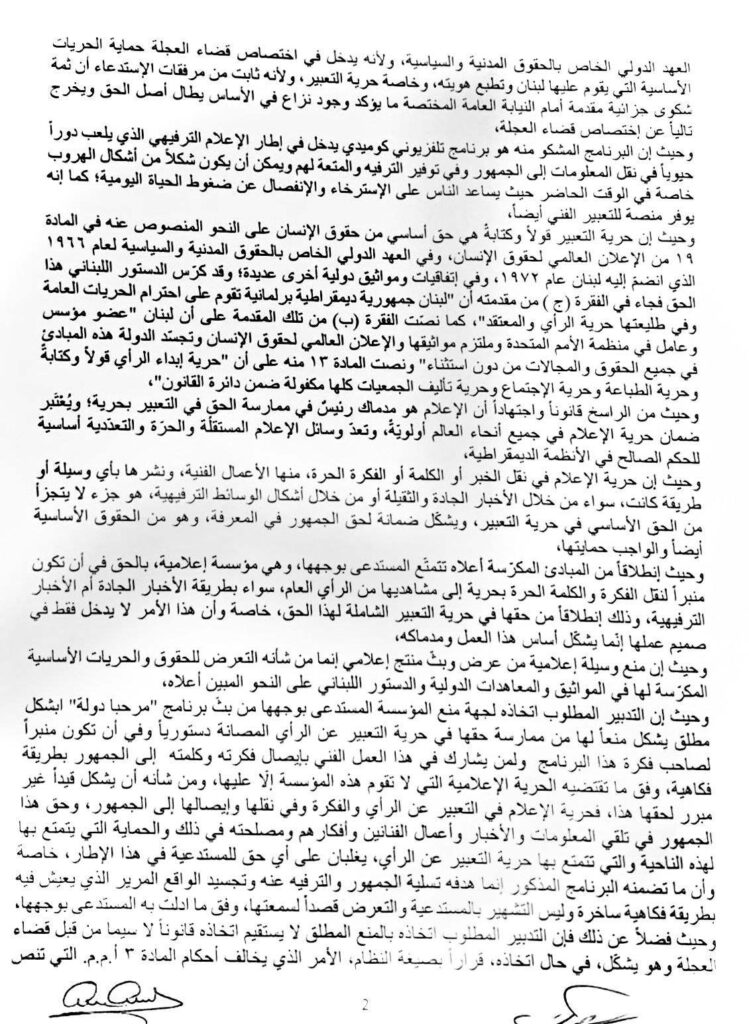 العهد الدولي الخاص بالحقوق المدنية والسياسية، ولأنه يدخل في اختصاص قضاء العجلة حماية الحريات
الأساسية التي يقوم عليها لبنان وتطبع هويته، وخاصة حرية التعبير، ولأنه ثابت من مرفقات الإستدعاء أن ثمة
شكوى جزائية مقدمة أمام النيابة العامة المختصة ما يؤكد وجود نزاع في الأساس يطال أصل الحق ويخرج
تالياً عن إختصاص قضاء العجلة،
وحيث إن البرنامج المشكو منه هو برنامج تلفزيوني كوميدي يدخل في إطار الإعلام الترفيهي الذي يلعب دوراً
حيوياً في نقل المعلومات إلى الجمهور وفي توفير الترفيه والمتعة لهم ويمكن أن يكون شكلاً من أشكال الهروب
خاصة في الوقت الحاضر حيث يساعد الناس على الإسترخاء والإنفصال عن ضغوط الحياة اليومية؛ كما إنه
يوفر منصة للتعبير الفني أيضاً،
وحيث إن حرية التعبير قولاً وكتابةً هي حق أساسي من حقوق الإنسان على النحو المنصوص عنه في المادة
١٩ من الإعلان العالمي لحقوق الإنسان، وفي العهد الدولي الخاص بالحقوق المدنية والسياسية لعام ١٩٦٦
الذي انضمّ إليه لبنان عام ١٩٧٢، وفي إتفاقيات ومواثيق دولية أخرى عديدة؛ وقد كرّس الدستور اللبناني هذا
الحق فجاء في الفقرة (ج) من مقدمته أن "لبنان جمهورية ديمقراطية برلمانية تقوم على احترام الحريات العامة
وفي طليعتها حرية الرأي والمعتقد"، كما نصّت الفقرة (ب) من تلك المقدمة على أن لبنان "عضو مؤسس
وعامل في منظمة الأمم المتحدة وملتزم مواثيقها والإعلان العالمي لحقوق الإنسان وتجسّد الدولة هذه المبادئ
في جميع الحقوق والمجالات من دون استثناء" ونصت المادة ١٣ منه على أن "حرية إبداء الرأي قولاً وكتابةً
وحرية الطباعة وحرية الإجتماع وحرية تأليف الجمعيات كلها مكفولة ضمن دائرة القانون"،
وحيث من الراسخ قانوناً واجتهاداً أن الإعلام هو مدماك رئيسٌ في ممارسة الحق في التعبير بحرية؛ ويُعْتَبر
ضمان حرية الإعلام في جميع أنحاء العالم أولويّة، وتعدّ وسائل الإعلام المستقلّة والحرّة والتعدّدية أساسية
للحكم الصالح في الأنظمة الديمقراطية،
وحيث إن حرية الإعلام في نقل الخبر أو الكلمة أو الفكرة الحرة، منها الأعمال الفنية، ونشرها بأي وسيلة أو
طريقة كانت، سواء من خلال الأخبار الجادة والثقيلة أو من خلال أشكال الوسائط الترفيهية، هو جزء لا يتجزأ
من الحق الأساسي في حرية التعبير، ويشكّل ضمانة لحق الجمهور في المعرفة، وهو من الحقوق الأساسية
أيضاً والواجب حمايتها،
وحيث إنطلاقاً من المبادئ المكرّسة أعلاه تتمتّع المستدعى بوجهها، وهي مؤسسة إعلامية، بالحق في أن تكون
منبراً لنقل الفكرة والكلمة الحرة بحرية إلى مشاهديها من الرأي العام، سواء بطريقة الأخبار الجادة أم الأخبار
الترفيهية، وذلك إنطلاقاً من حقها في حرية التعبير الشاملة لهذا الحق، خاصة وأن هذا الأمر لا يدخل فقط في
صميم عملها إنّما يشكّل أساس هذا العمل ومدماكه،
وحيث إن منع وسيلة إعلامية من عرض وبثّ منتج إعلامي إنما من شأنه التعرض للحقوق والحريات الأساسية
المكرّسة لها في المواثيق والمعاهدات الدولية والدستور اللبناني على النحو المبين أعلاه،
وحيث إن التدبير المطلوب اتخاذه لجهة منع المؤسسة المستدعى بوجهها من بثّ برنامج "مرحبا دولة" ابشكل
مطلق يشكل منعاً لها من ممارسة حقها في حرية التعبير عن الرأي المصانة دستورياً وفي أن تكون منبراً
لصاحب فكرة هذا البرنامج ولمن يشارك في هذا العمل الفني بإيصال فكرته وكلمته إلى الجمهور بطريقة
فكاهية، وفق ما تقتضيه الحرية الإعلامية التي لا تقوم هذه المؤسسة إلّا عليها، ومن شأنه أن يشكل قيداً غير
مبرر لحقها هذا، فحرية الإعلام في التعبير عن الرأي والفكرة وفي نقلها وإيصالها إلى الجمهور، وحق هذا
الجمهور في تلقي المعلومات والأخبار وأعمال الفنانين وأفكارهم ومصلحته في ذلك والحماية التي يتمتع بها
لهذه الناحية والتي تتمتع بها حرية التعبير عن الرأي، يغلبان على أي حق للمستدعية في هذا الإطار، خاصة
وأن ما تضمنه البرنامج المذكور إنما هدفه تسلية الجمهور والترفيه عنه وتجسيد الواقع المرير الذي يعيش فيه
بطريقة فكاهية ساخرة وليس التشهير بالمستدعية والتعرض قصداً لسمعتها، وفق ما ادلت به المستدعى بوجهها،
وحيث فضلاً عن ذلك فإن التدبير المطلوب اتخاذه بالمنع المطلق لا يستقيم اتخاذه قانوناً لا سيما من قبل قضاء
العجلة وهو يشكّل، في حال اتخاذه، قراراً بصيغة النظام، الأمر الذي يخالف أحكام المادة ٣ أ.م.م. التي تنص
2